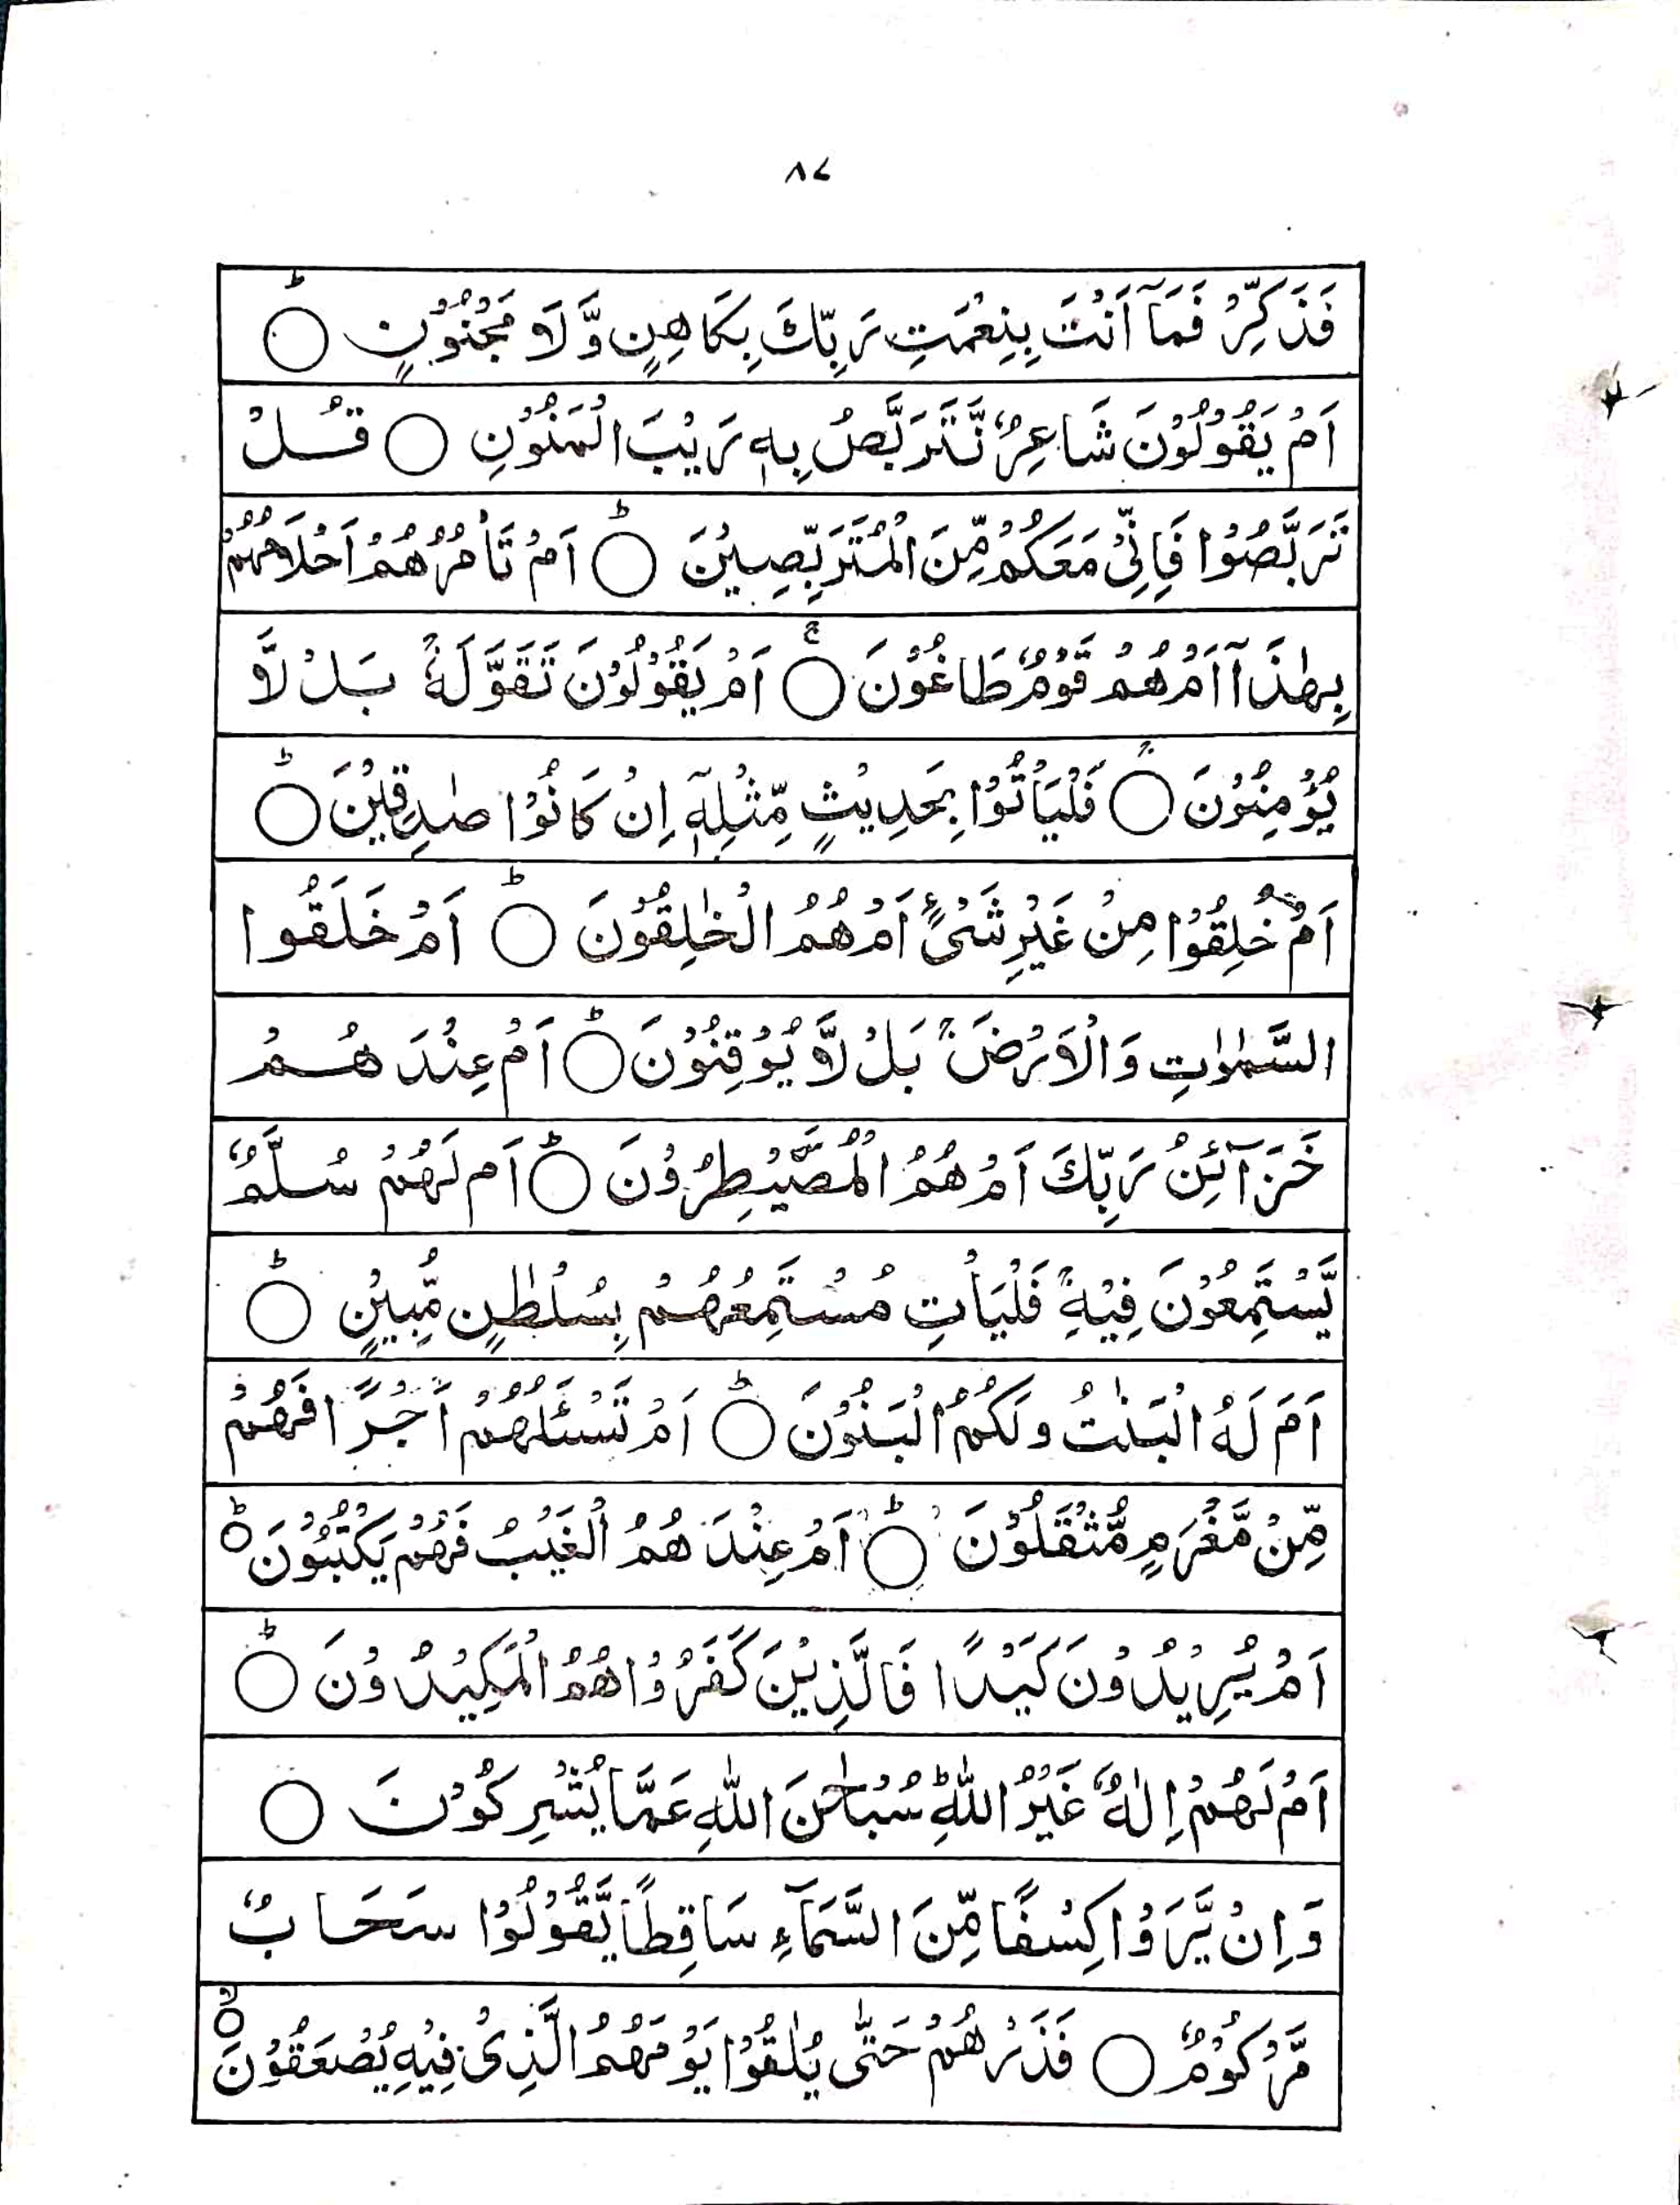 ۸۷
فَذَكِّرْ فَمَآ اَنْتَ بِنِعْمَتِ رَبِّكَ بِكَاهِنٍ وَّلَا مَجْنُوْنٍ ○ؕ
اَمْ يَقُوْلُوْنَ شَاعِرٌ نَّتَرَبَّصُ بِهٖ رَيْبَ الْمَنُوْنِ ○ قُلْ
تَرَبَّصُوْا فَاِنِّىْ مَعَكُمْ مِّنَ الْمُتَرَبِّصِيْنَ ○ؕ اَمْ تَاْمُرُهُمْ اَحْلَامُهُمْ
بِهٰذَآ اَمْ هُمْ قَوْمٌ طَاغُوْنَ ○ۚ اَمْ يَقُوْلُوْنَ تَقَوَّلَهٗ ۚ بَلْ لَّا
يُؤْمِنُوْنَ ○ۚ فَلْيَاْتُوْا بِحَدِيْثٍ مِّثْلِهٖٓ اِنْ كَانُوْا صٰدِقِيْنَ ○ؕ
اَمْ خُلِقُوْا مِنْ غَيْرِ شَىْءٍ اَمْ هُمُ الْخٰلِقُوْنَ ○ؕ اَمْ خَلَقُوا
السَّمٰوٰتِ وَالْاَرْضَ ۚ بَلْ لَّا يُوْقِنُوْنَ ○ؕ اَمْ عِنْدَ هُمْ
خَزَآئِنُ رَبِّكَ اَمْ هُمُ الْمُصَۜيْطِرُوْنَ ○ؕ اَم لَهُمْ سُلَّمٌ
يَّسْتَمِعُوْنَ فِيْهِ ۚ فَلْيَاْتِ مُسْتَمِعُهُمْ بِسُلْطٰنٍ مُّبِيْنٍ ○ؕ
اَمَ لَهُ الْبَنٰتُ ولَكُمُ الْبَنُوْنَ ○ؕ اَمْ تَسْئَلُهُمْ اَجْرًا فَهُمْ
مِّنْ مَّغْرَمٍ مُّثْقَلُوْنَ ○ؕ اَمْ عِنْدَ هُمُ الْغَيْبُ فَهُمْ يَكْتُبُوْنَ ○ؕ
اَمْ يُرِيْدُوْنَ كَيْدًا فَالَّذِيْنَ كَفَرُوْا هُمُ الْمَكِيْدُوْنَ ○ؕ
اَمْ لَهُمْ اِلٰهٌ غَيْرُ اللّٰهِؕ سُبْحٰنَ اللّٰهِ عَمَّا يُشْرِكُوْنَ ○
وَاِنْ يَّرَوْا كِسْفًا مِّنَ السَّمَآءِ سَاقِطًا يَّقُوْلُوْا سَحَابٌ
مَّرْكُوْمٌ ○ فَذَرْهُمْ حَتّٰى يُلٰقُوْا يَوْمَهُمُ الَّذِىْ فِيْهِ يُصْعَقُوْنَ ○ۙ